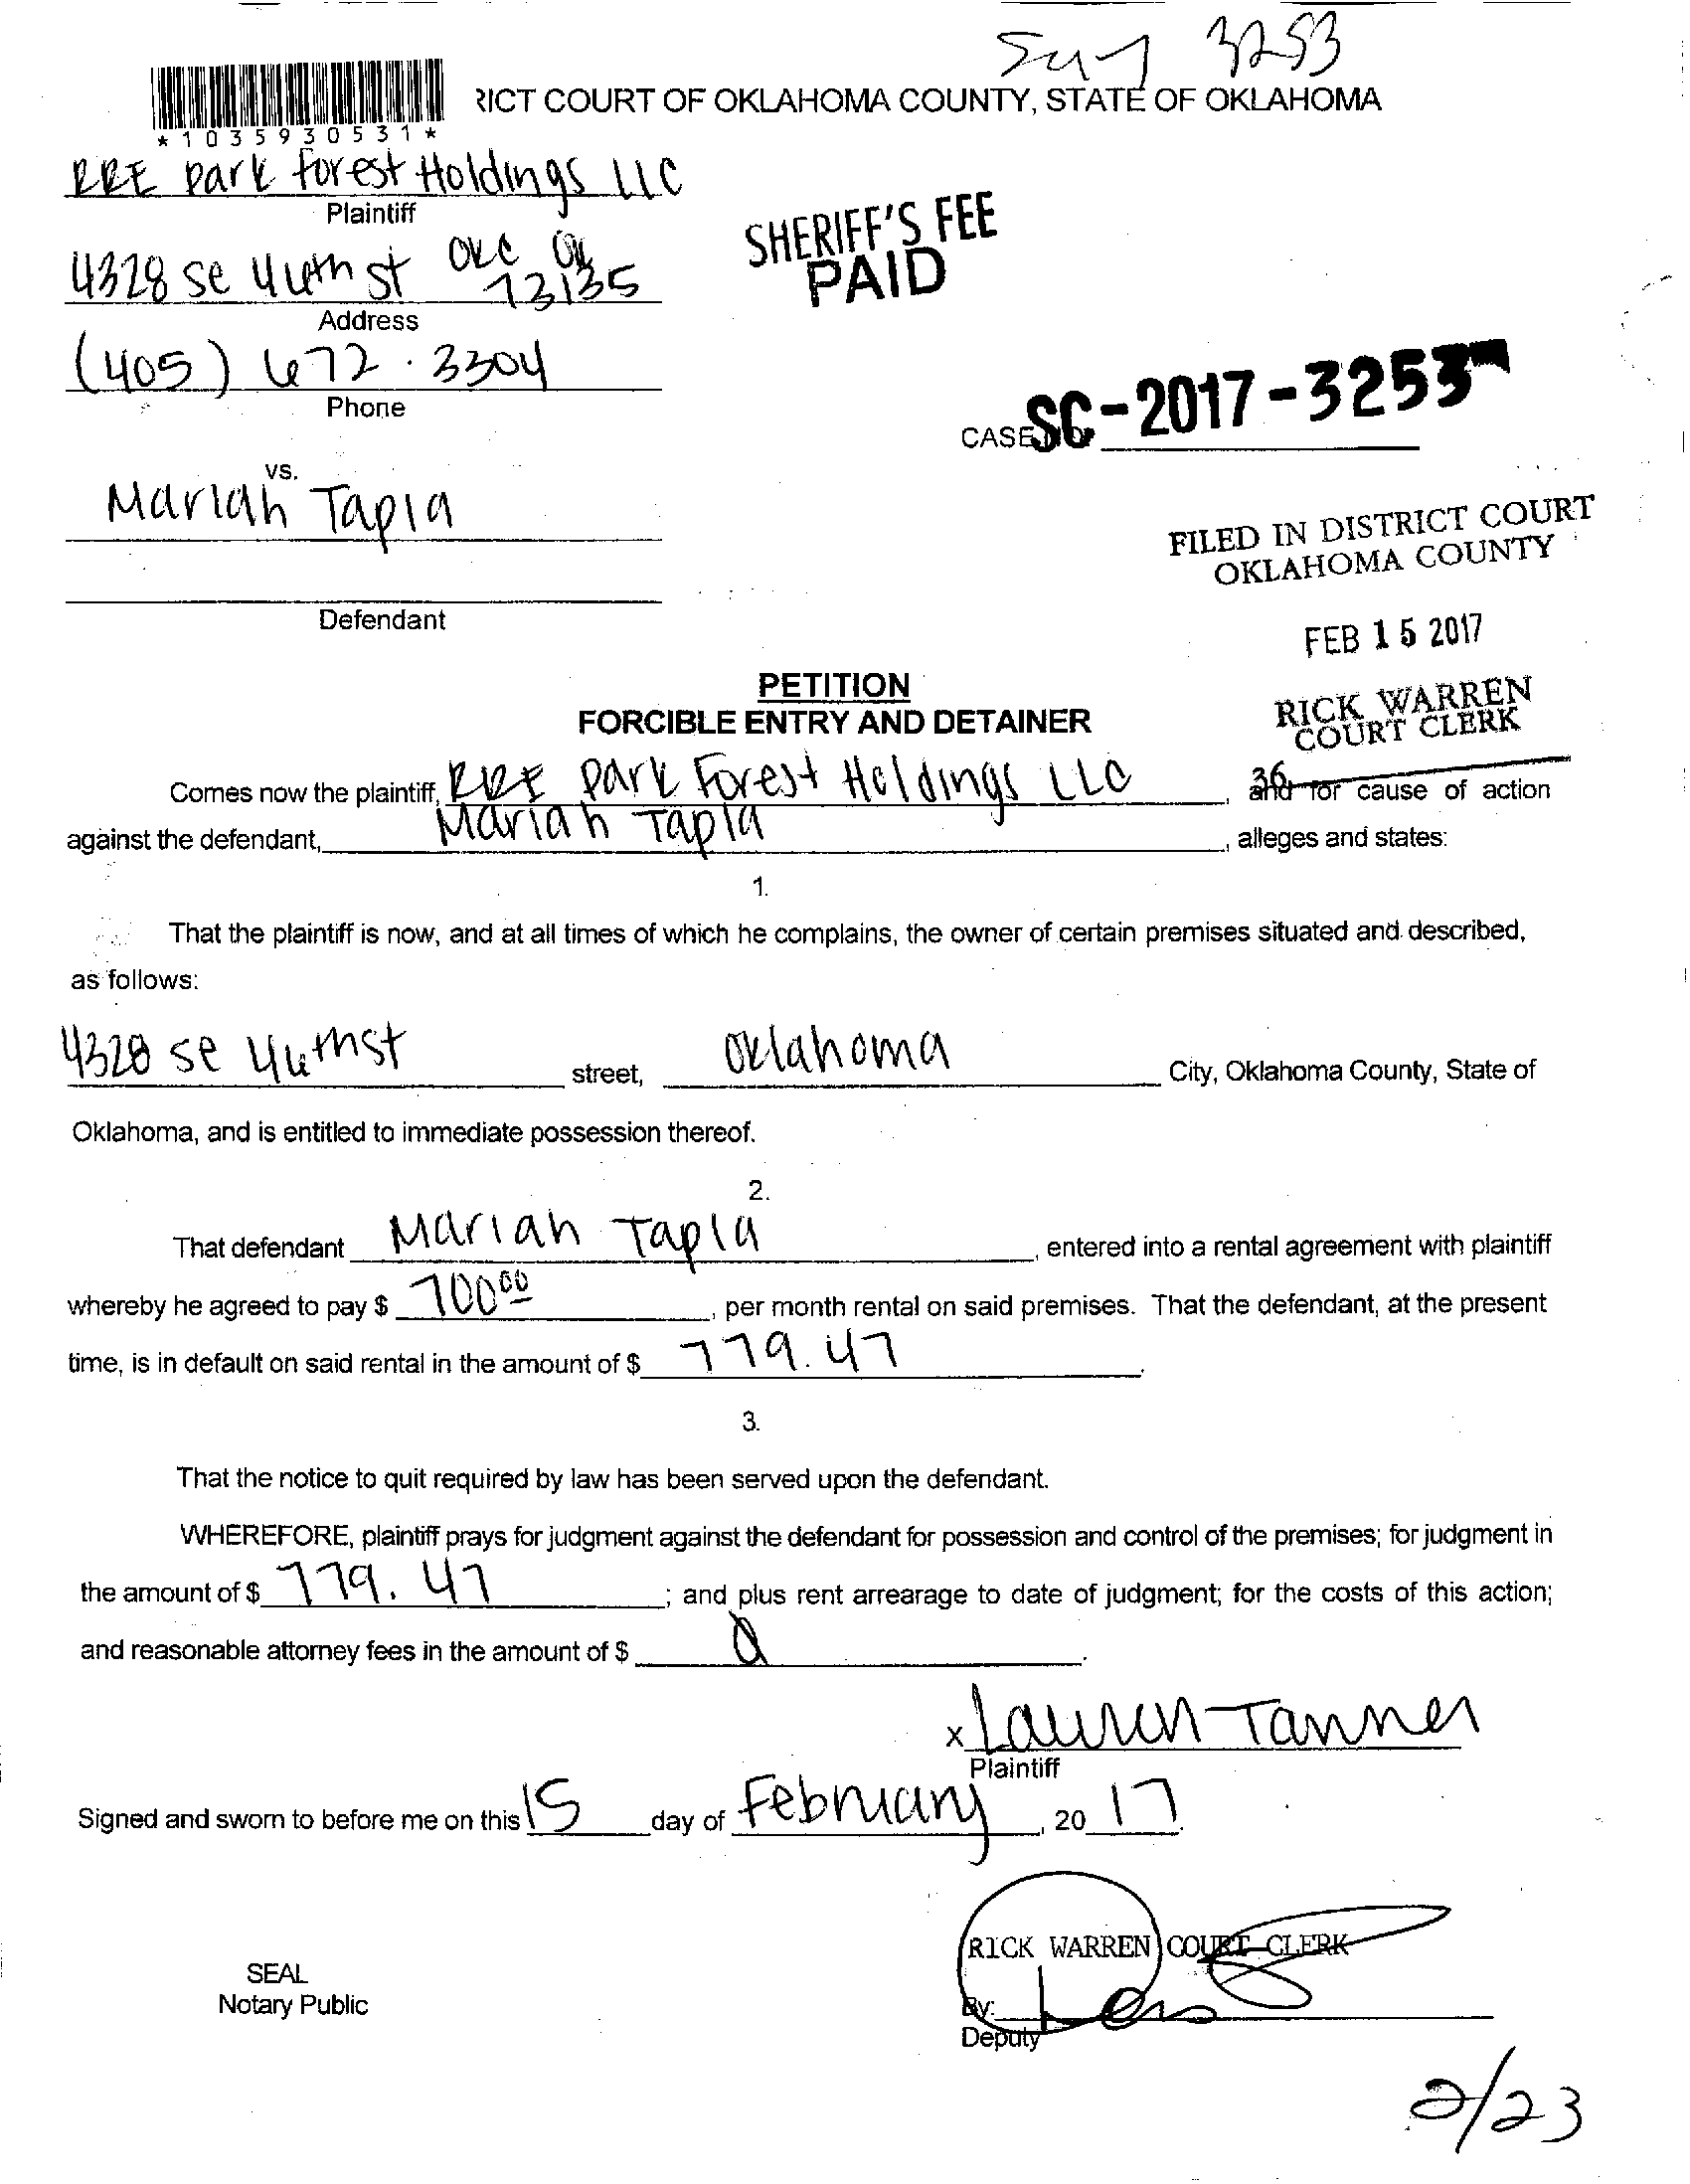 3253
RICT COURT OF OKLAHOMA COUNTY, STATE OF OKLAHOMA
*1035930531*
RRE Park Forest Holdings LLC
Plaintiff
SHERIFF'S FEE
PAID
4328 SE 44th st OKC OK
73135
Address
(405) 672.3304
Phone
SC-2017-3253
CASE NO.
vs.
Mariah Tapia
FILED IN DISTRICT COURT
OKLAHOMA COUNTY
Defendant
FEB 15 2017
PETITION
RICK WARREN
COURT CLERK
FORCIBLE ENTRY AND DETAINER
36
Comes now the plaintiff, RRE Park Forest Holdings LLC, and for cause of action
against the defendant, Mariah Tapia, alleges and states:
1.
That the plaintiff is now, and at all times of which he complains, the owner of certain premises situated and described,
as follows:
4328 SE 44th st street, Oklahoma City, Oklahoma County, State of
Oklahoma, and is entitled to immediate possession thereof.
2.
That defendant Mariah Tapia, entered into a rental agreement with plaintiff
whereby he agreed to pay $ 700.00, per month rental on said premises. That the defendant, at the present
time, is in default on said rental in the amount of $ 779.47.
3.
That the notice to quit required by law has been served upon the defendant.
WHEREFORE, plaintiff prays for judgment against the defendant for possession and control of the premises; for judgment in
the amount of $ 779.47; and plus rent arrearage to date of judgment; for the costs of this action;
and reasonable attorney fees in the amount of $
x Lauren Tanner
Plaintiff
Signed and sworn to before me on this 15 day of February, 20 17.
RICK WARREN COURT CLERK
SEAL
Notary Public
By:
Deputy
2/23